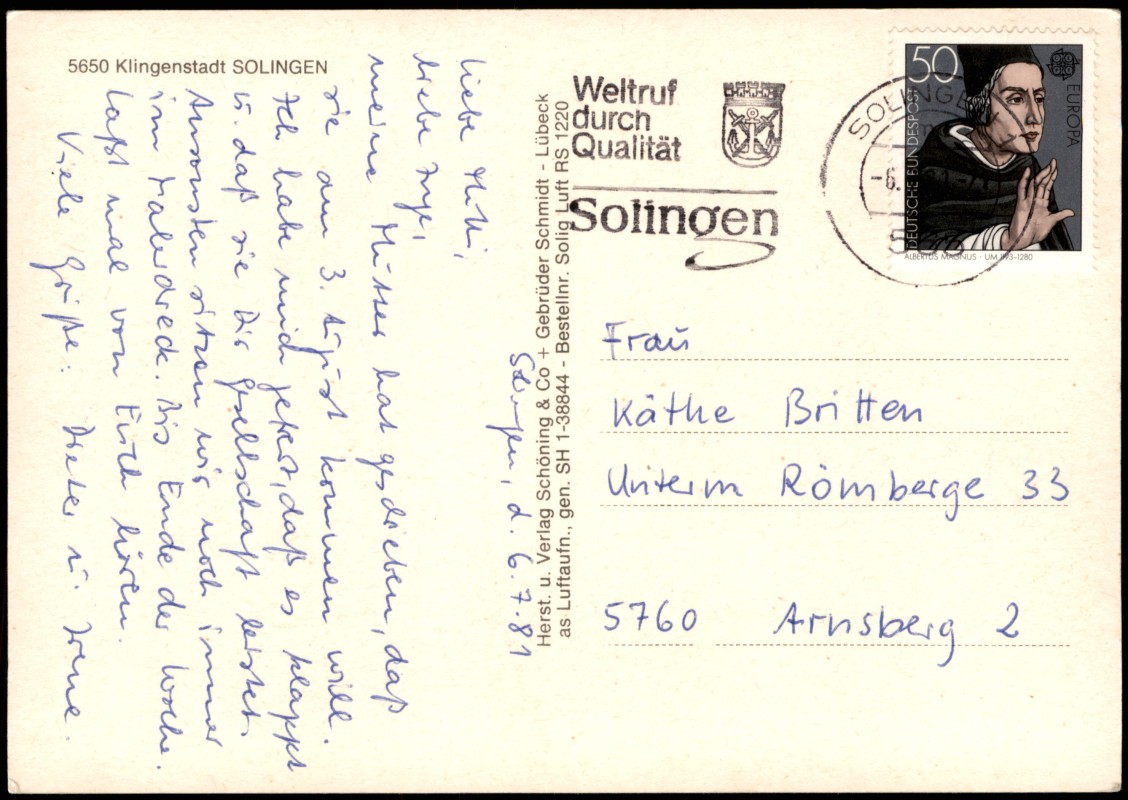 5650 Klingenstadt SOLINGEN
Solingen, d. 6.7.81
Liebe Mutti,
liebe Inge,
meine Mutter hat geschrieben, daß
sie am 3. August kommen will.
Ich habe mich gefreut, daß es klappt
u. daß sie Dir Gesellschaft leistet.
Ansonsten sitzen wir noch immer
im Malerdreck. Bis Ende der Woche.
Laßt mal von Euch hören.
Viele Grüße. Dieter u. Irene.
Herst. u. Verlag Schöning & Co + Gebrüder Schmidt - Lübeck
as Luftaufn., gen. SH 1-38844 - Bestellnr. Solig Luft RS 1220
Weltruf
durch
Qualität
Solingen
SOLINGE
-6.
50
EUROPA
DEUTSCHE BUNDESPOST
ALBERTUS MAGNUS · UM 1193–1280
Frau
Käthe Britten
Unterm Römberge 33
5760 Arnsberg 2